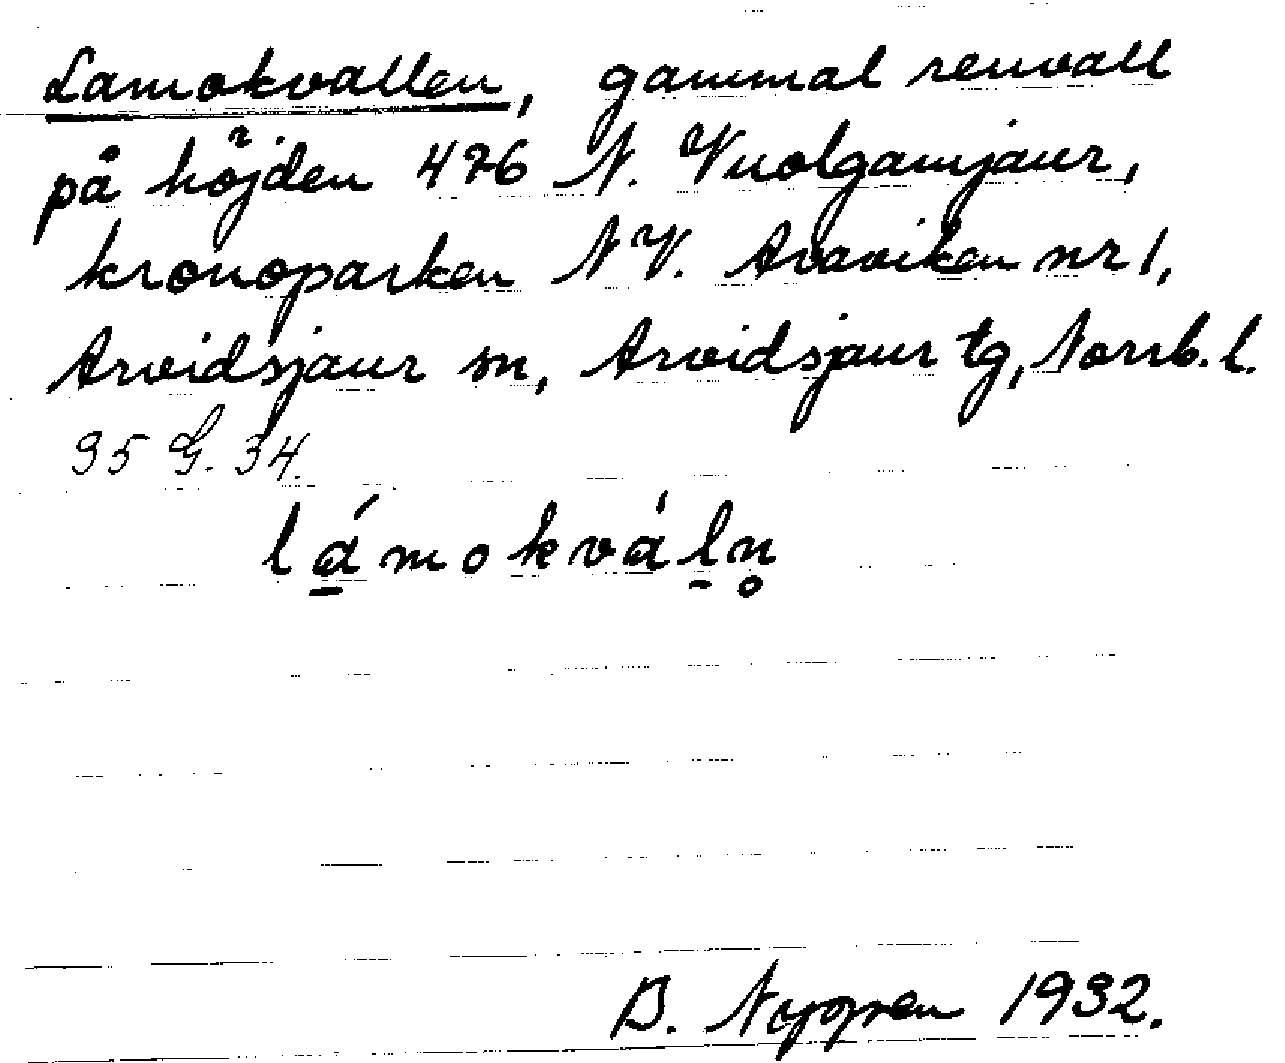 Lamokvallen, gammal renvall
på höjden 476 N. Vuolgamjaur,
kronoparken NV. Avaviken nr 1,
Arvidsjaur sn, Arvidsjaur tg, Norrb. l.
95 G. 34.
lá̱mokvàḻn̥
B. 1932.